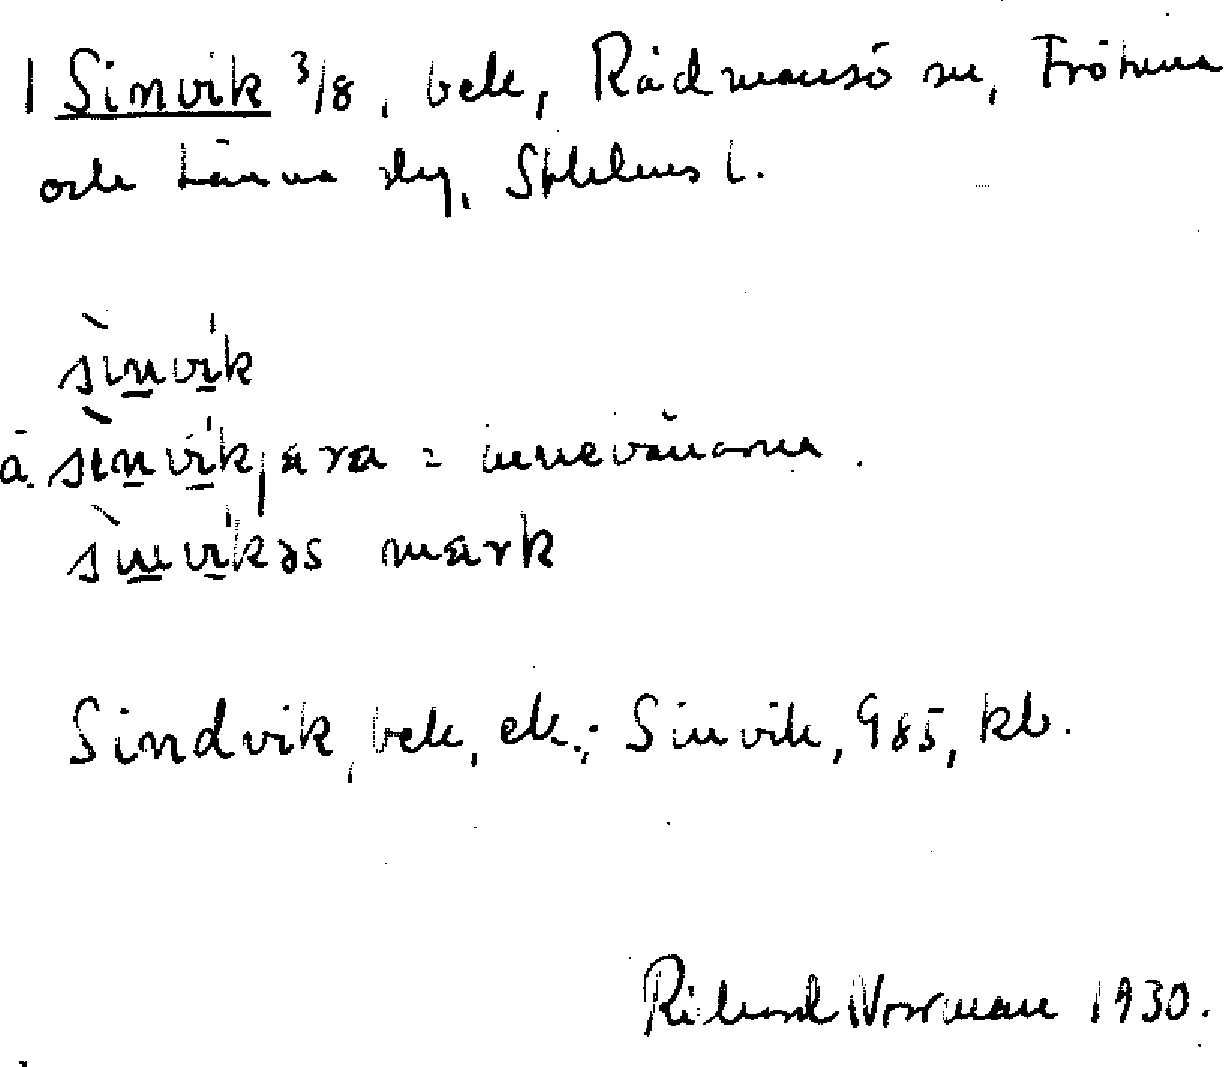 1 Sinvik 3/8, bek, Rådmansö sn, Frötuna
och Länna slg, Sthlms l.
sìnvík
å. sìnvíkjara = innevånarna.
sìnvíkəs mark
Sindvik, bek, ek.; Sinvik, 985, kb.
Rikard Norrman 1930.